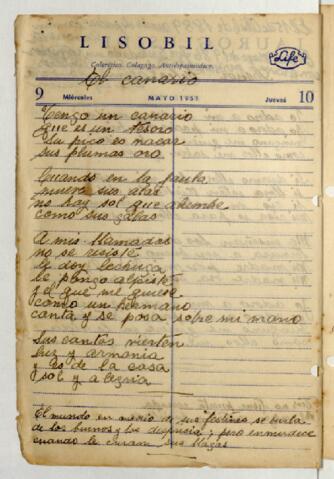 LISOBIL
Colerético, Colagogo, Antiespasmódico
Life
El canario
9 Miércoles MAYO 1951 Jueves 10
Tengo un canario
que es un tesoro
Su pico es nacar
sus plumas oro
Cuando en la jaula
mueve sus alas
no hay sol que alumbre
como sus galas
A mis llamadas
no se resiste
le doy lechuga
le pongo alpiste
y el que me quiere
como un hermano
canta y se posa sobre mi mano
Sus cantos vierten
luz y armonia
y es de la casa
sol y alegria
El mundo en medio de sus festines se burla
de los buenos y los desprecia; pero enmudece
cuando le curan sus llagas